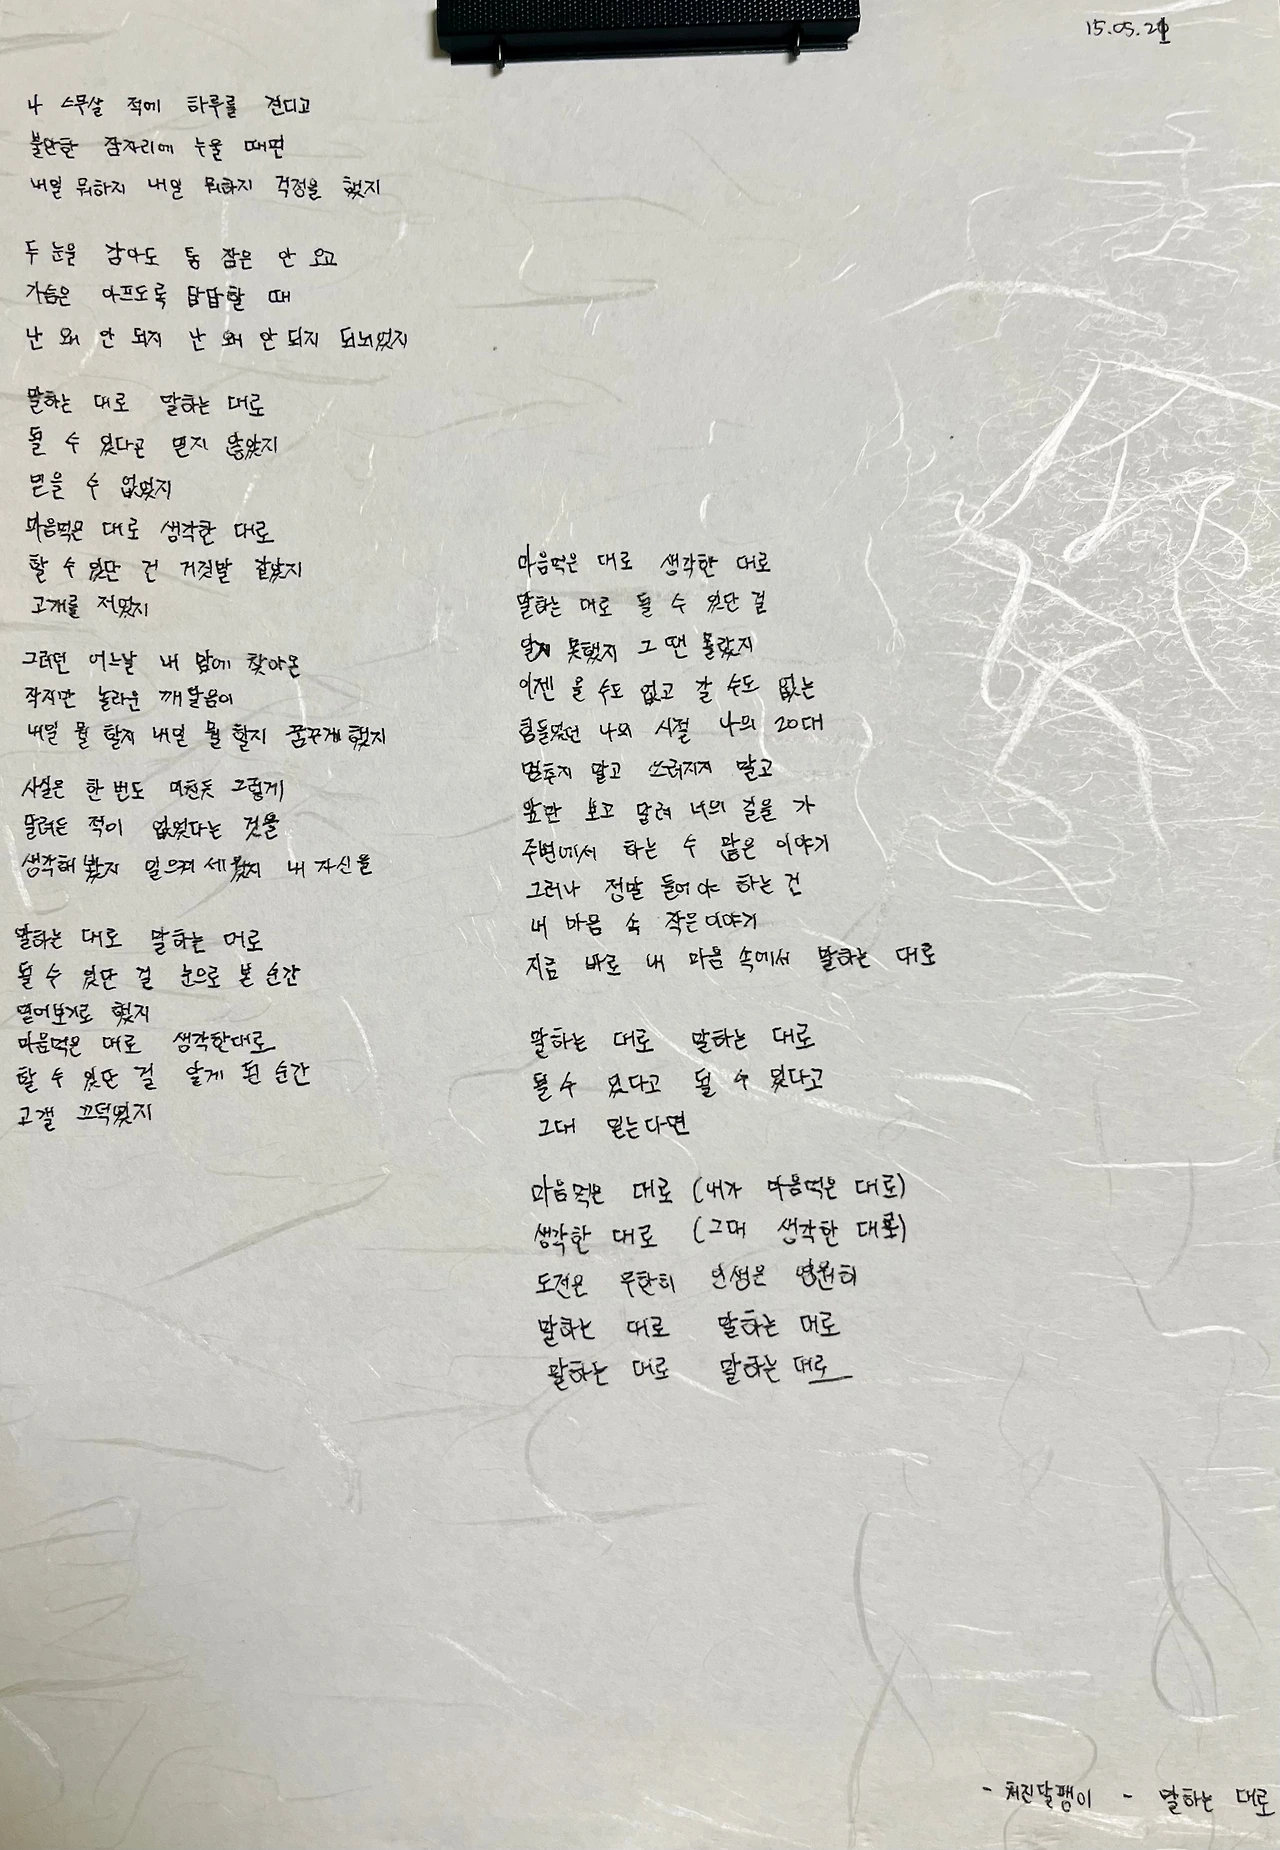 15.05.21
나 스무살 적에 하루를 견디고
불안한 잠자리에 누울 때면
내일 뭐하지 내일 뭐하지 걱정을 했지
두 눈을 감아도 통 잠은 안 오고
가슴은 아프도록 답답할 때
난 왜 안 되지 난 왜 안 되지 되뇌었지
말하는 대로 말하는 대로
될 수 있다곤 믿지 않았지
믿을 수 없었지
마음먹은 대로 생각한 대로
할 수 있단 건 거짓말 같았지
고개를 저었지
그러던 어느날 내 맘에 찾아온
작지만 놀라운 깨달음이
내일 뭘 할지 내일 뭘 할지 꿈꾸게 했지
사실은 한 번도 미친듯 그렇게
달려든 적이 없었다는 것을
생각해 봤지 일으켜 세웠지 내 자신을
말하는 대로 말하는 대로
될 수 있단 걸 눈으로 본 순간
믿어보기로 했지
마음먹은 대로 생각한대로
할 수 있단 걸 알게 된 순간
고갤 끄덕였지
마음먹은 대로 생각한 대로
말하는 대로 될 수 있단 걸
알지 못했지 그 땐 몰랐지
이젠 올 수도 없고 갈 수도 없는
힘들었던 나의 시절 나의 20대
멈추지 말고 쓰러지지 말고
앞만 보고 달려 너의 길을 가
주변에서 하는 수 많은 이야기
그러나 정말 들어야 하는 건
내 마음 속 작은 이야기
지금 바로 내 마음 속에서 말하는 대로
말하는 대로 말하는 대로
될 수 있다고 될 수 있다고
그대 믿는다면
마음먹은 대로 (내가 마음먹은 대로)
생각한 대로 (그대 생각한 대로)
도전은 무한히 인생은 영원히
말하는 대로 말하는 대로
말하는 대로 말하는 대로
- 처진달팽이 - 말하는 대로